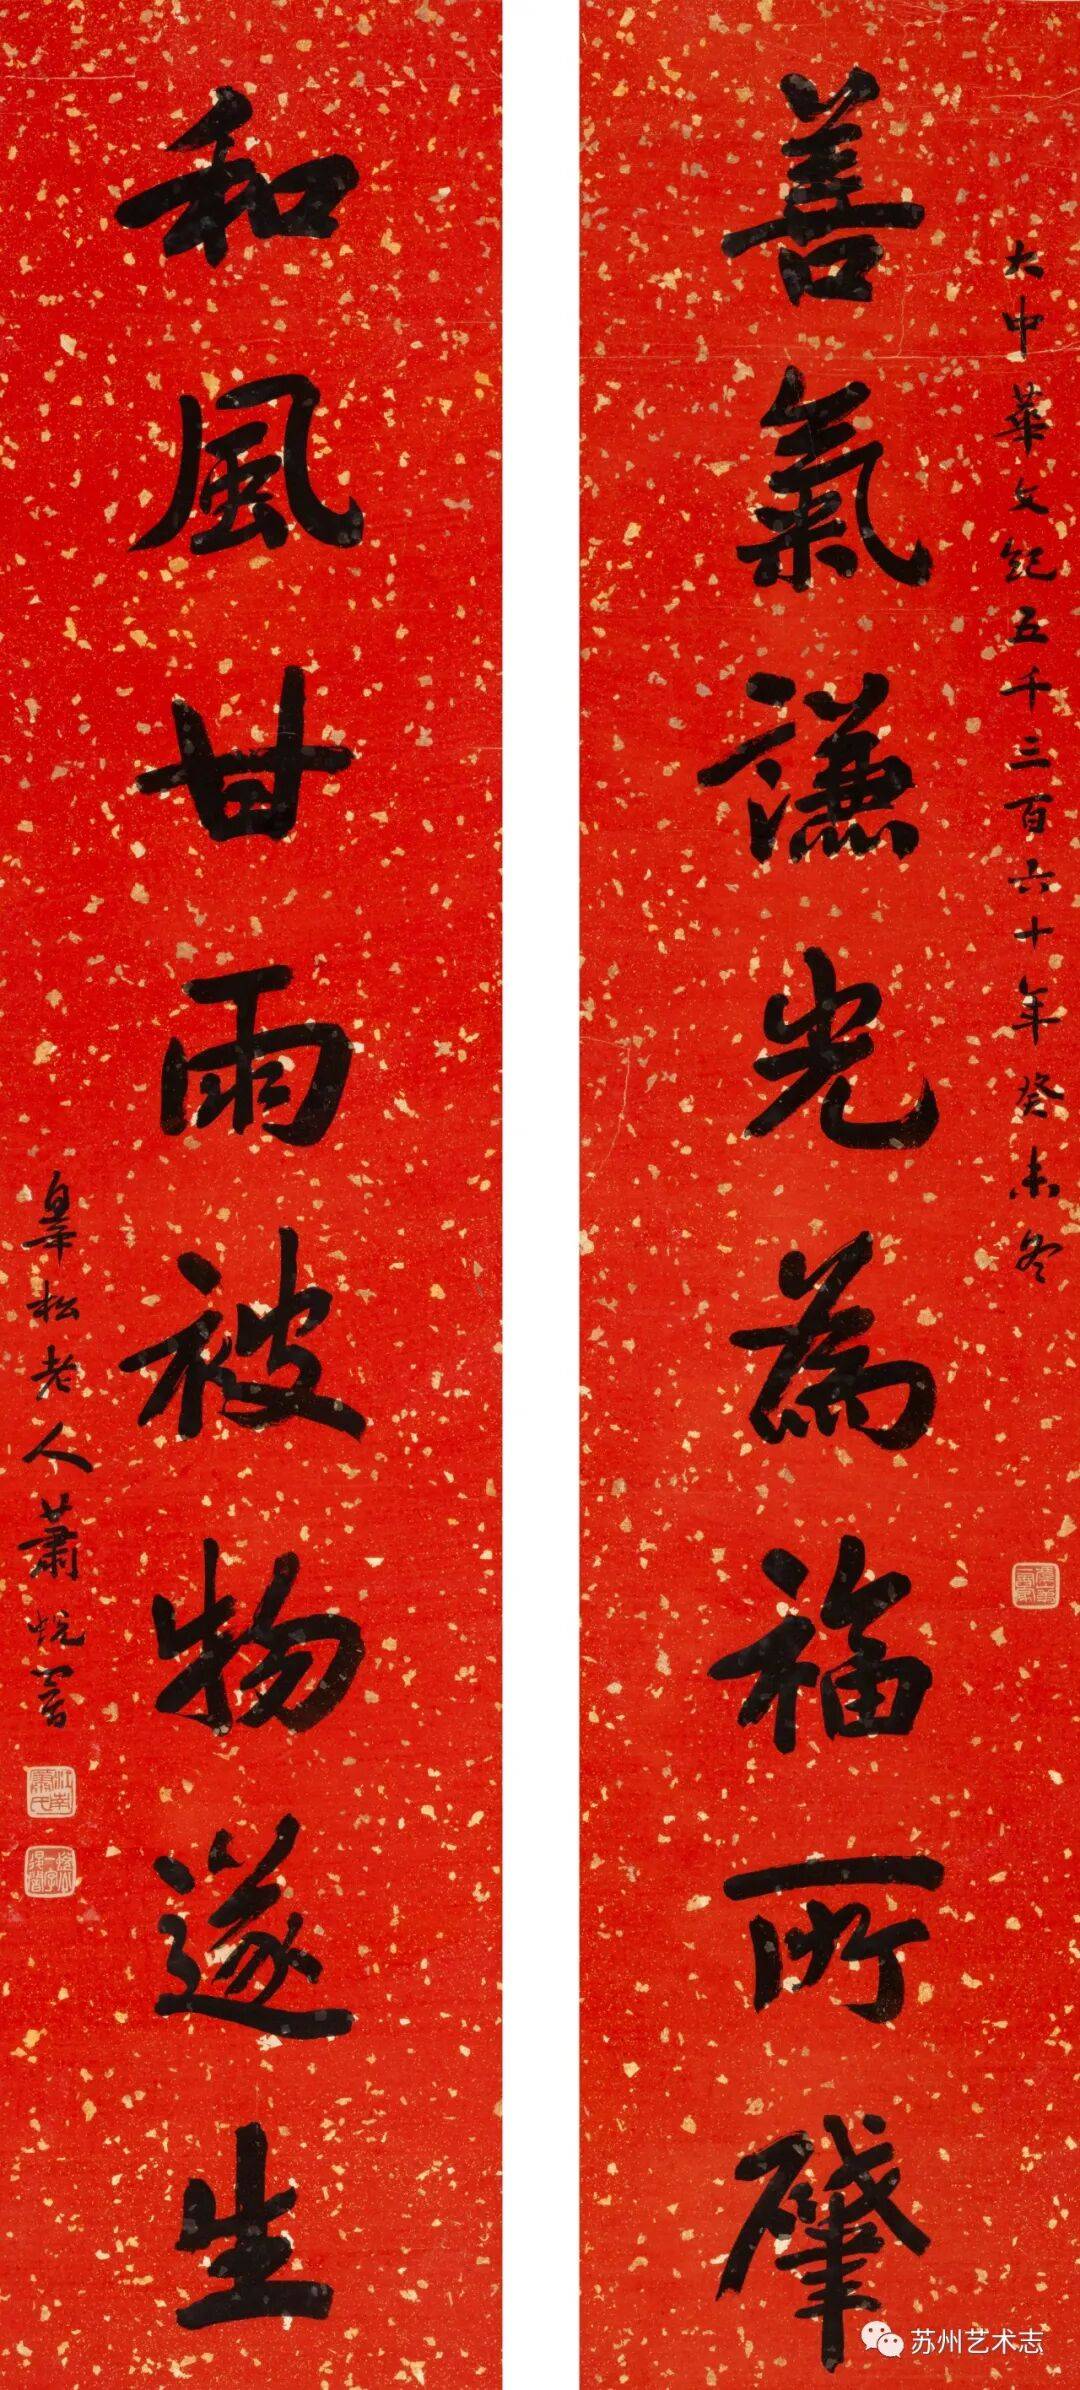 大中華文紀五千三百六十年癸未冬
善氣謙光為福所肇
和風甘雨被物遂生
皋松老人蕭蛻書
江南蕭氏
苏州艺术志